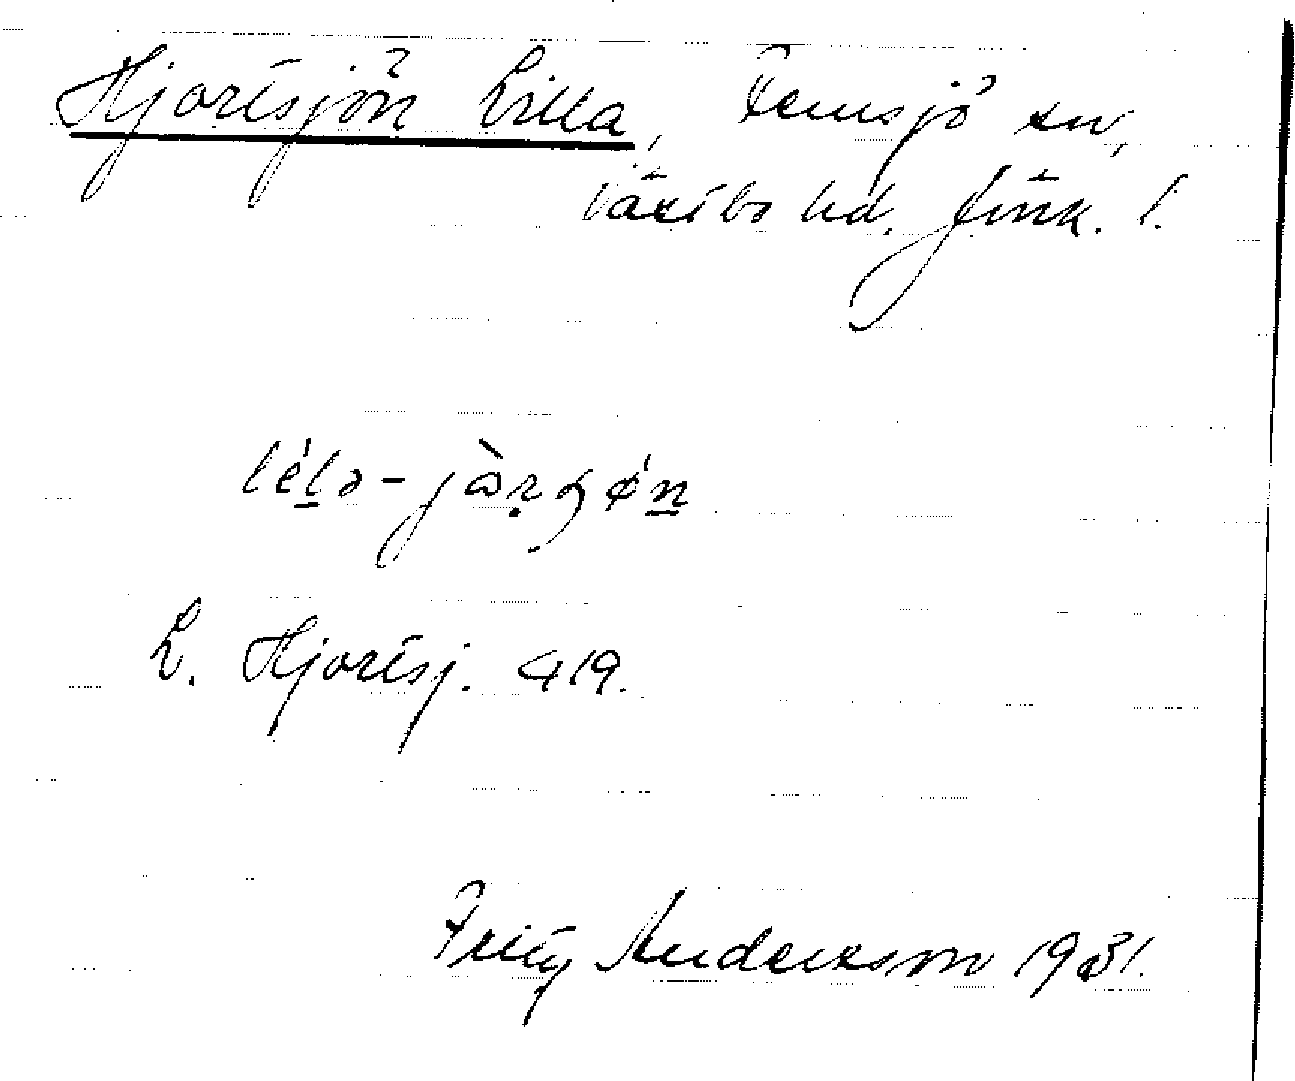 Hjortsjön Lilla, Femsjö sn,
Västbo hd. Jönk. l.
lélə-jàrʂǿn
L. Hjortsj. 419.
Fritz Andersson 1931.